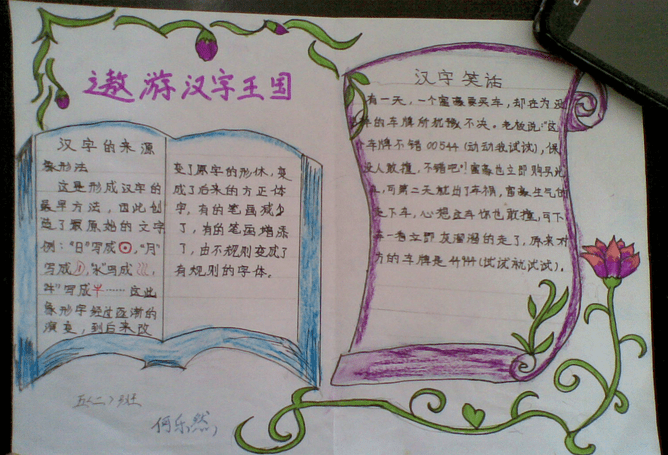 遨游汉字王国
汉字的来源
象形法
这是形成汉字的
最早方法，因此创
造了最原始的文字
例："日"写成，"月"
写成，"水"写成，
"牛"写成……这些
象形字经过逐渐的
演变，到后来改
变了原字的形体，变
成了后来的方正体
字，有的笔画减少
了，有的笔画增添
了，由不规则变成了
有规则的字体。
汉字笑话
有一天，一个富豪要买车，却在为
车的车牌所犹豫不决。老板说："这
车牌不错00544（动动我试试），保
没人敢撞，不错吧！"富豪也立即购买
，可第二天就出了车祸，富豪生气
走下车，心想这车你也敢撞，可下
一看立即灰溜溜的走了，原来对
方的车牌是44944（试试就试试）。
五〈二〉班
何乐然